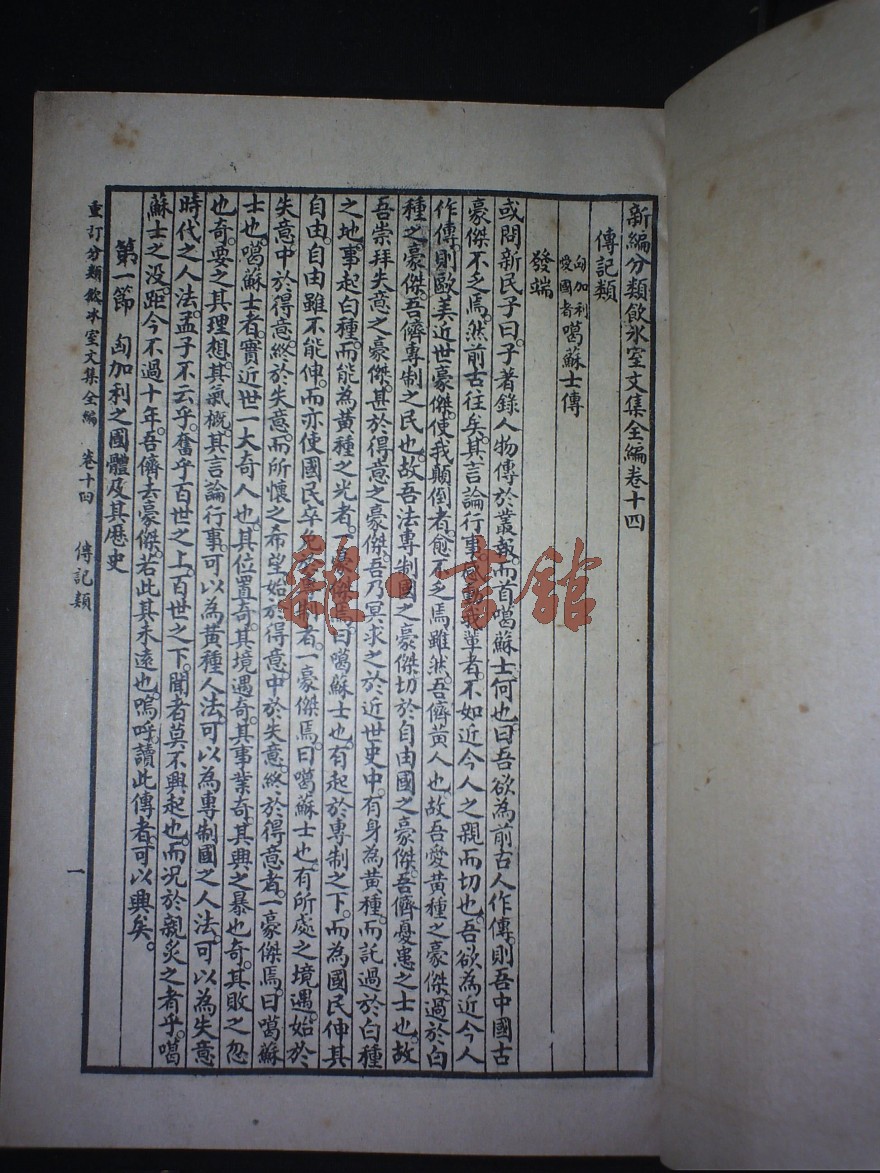 新編分類飲氷室文集全編卷十四
傳記類
匈加利愛國者噶蘇士傳
發端
或問新民子曰。子著錄人物傳於叢報。而首噶蘇士何也。曰吾欲為前古人作傳。則吾中國古
豪傑不乏焉。然前古往矣。其言論行事。感動我輩者。不如近今人之親而切也。吾欲為近今人
作傳。則歐美近世豪傑。使我顛倒者。愈不乏焉。雖然。吾儕黃人也。故吾愛黃種之豪傑過於白
種之豪傑。吾儕專制之民也。故吾法專制國之豪傑切於自由國之豪傑。吾儕憂患之士也。故
吾崇拜失意之豪傑。甚於得意之豪傑。吾乃冥求之於近世史中。有身為黃種。而託過於白種
之地。事起白種。而能為黃種之光者。一豪傑焉。曰噶蘇士也。有起於專制之下。而為國民伸其
自由。自由雖不能伸。而亦使國民卒免於專制者。一豪傑焉。曰噶蘇士也。有所處之境遇。始於
失意。中於得意。終於失意。而所懷之希望始於得意。中於失意。終於得意者。一豪傑焉。曰噶蘇
士也。噶蘇士者。實近世一大奇人也。其位置奇。其境遇奇。其事業奇。其興之暴也奇。其敗之忽
也奇。要之其理想。其氣概。其言論行事。可以為黃種人法。可以為專制國之人法。可以為失意
時代之人法。孟子不云乎。奮乎百世之上。百世之下。聞者莫不興起也。而況於親炙之者乎。噶
蘇士之沒。距今不過十年。吾儕去豪傑。若此其未遠也。嗚呼。讀此傳者。可以興矣。
第一節 匈加利之國體及其歷史
重訂分類飲冰室文集全編 卷十四 傳記類 一
雜·書館